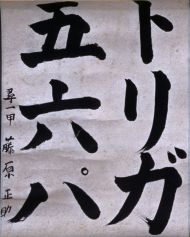 トリガ
五六。八
尋一甲 藤原正助